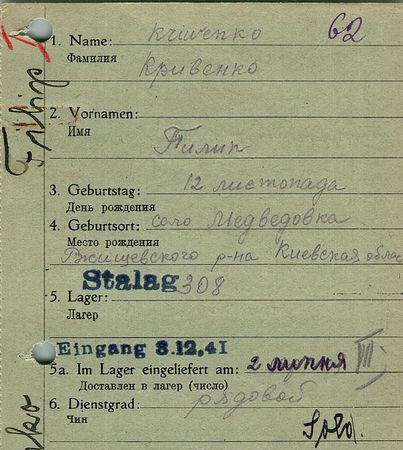 Kriwenko 62
1. Name:
Фамилия
Кривенко
2. Vornamen:
Имя
Пилип
3. Geburtstag: 12 листопада
День рождения
4. Geburtsort: село Медведовка
Место рождения
Ржищевского р-на Киевская облас
Stalag 308
5. Lager:
Лагер
Eingang 3.12.41
5a. Im Lager eingeliefert am: 2 липня VII
Доставлен в лагер (число)
6. Dienstgrad: рядовой
Чин
Sold.
Filip
nko